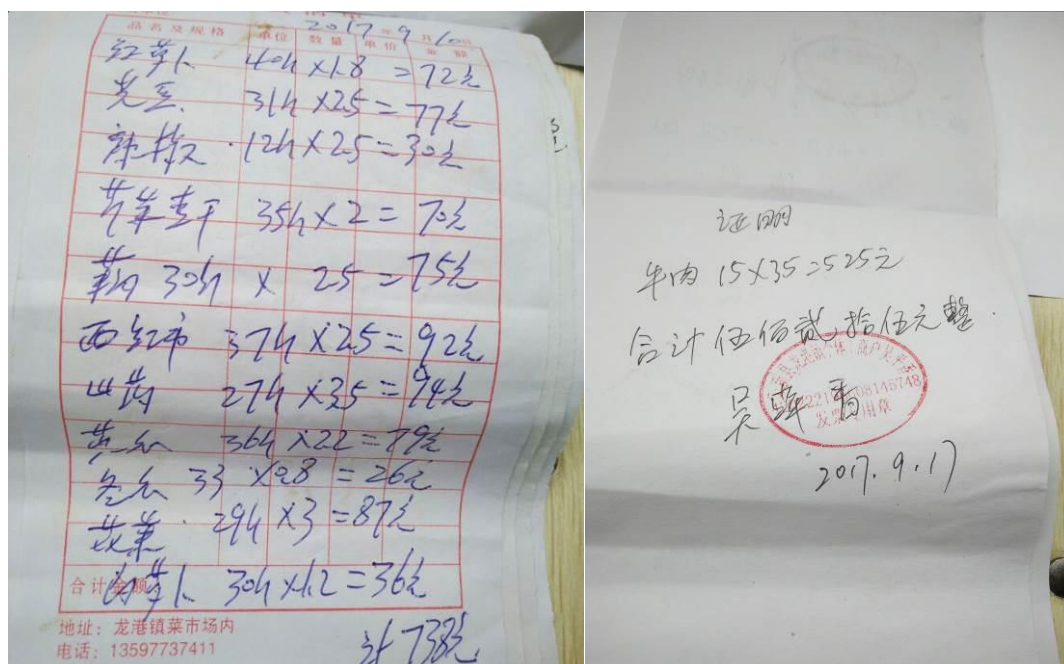 2017年9月10日
品名及规格 单位 数量 单价 金额
红萝卜 40斤×1.8=72元
31斤×2.5=77元
辣椒 12斤×2.5=30元
35斤×2=70元
30斤×2.5=75元
西红市 37斤×2.5=92元
27斤×3.5=94元
黄瓜 36斤×2.2=79元
冬瓜 33×0.8=26元
29斤×3=87元
合计金额
白萝卜 30斤×1.2=36元
地址：龙港镇菜市场内
电话：13597737411
计738元
证明
牛肉 15×35=525元
合计伍佰贰拾伍元整
发票专用章
2017.9.17